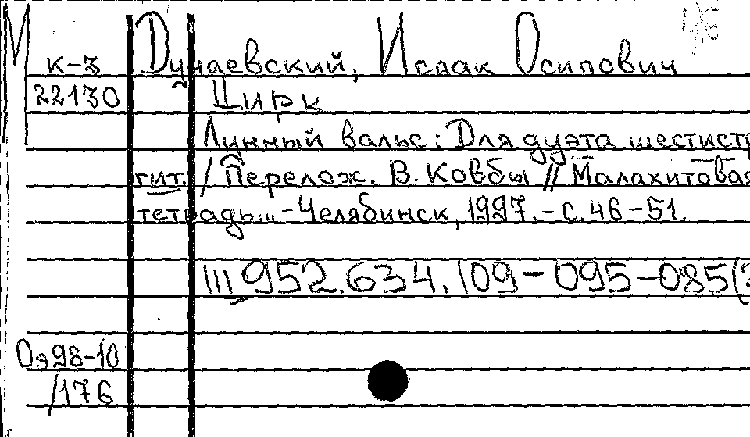 М
к-з Дунаевский, Исаак Осипович
22130 Цирк
Лунный вальс: Для дуэта шестистр
гит. / Перелож. В. Ковбы // Малахитовая
тетрадь... - Челябинск, 1997. - С. 46-51.
Ш 952.634.109-095-085(
Оэ98-10
/176